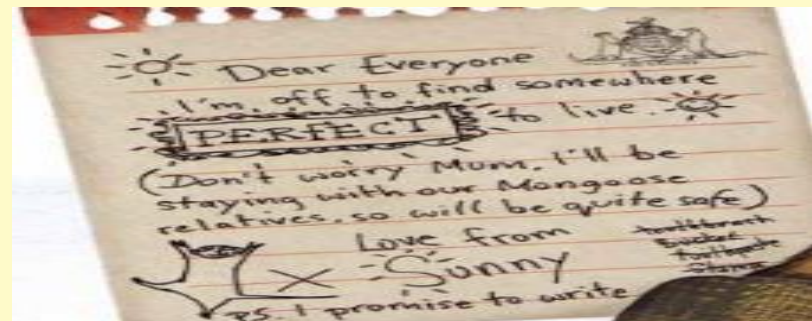 Dear Everyone
I'm off to find somewhere
PERFECT to live.
(Don't worry Mum, I'll be
staying with our Mongoose
relatives, so will be quite safe)
Love from
X Sunny
toothbrush
bucket
toothpaste
PS. I promise to write